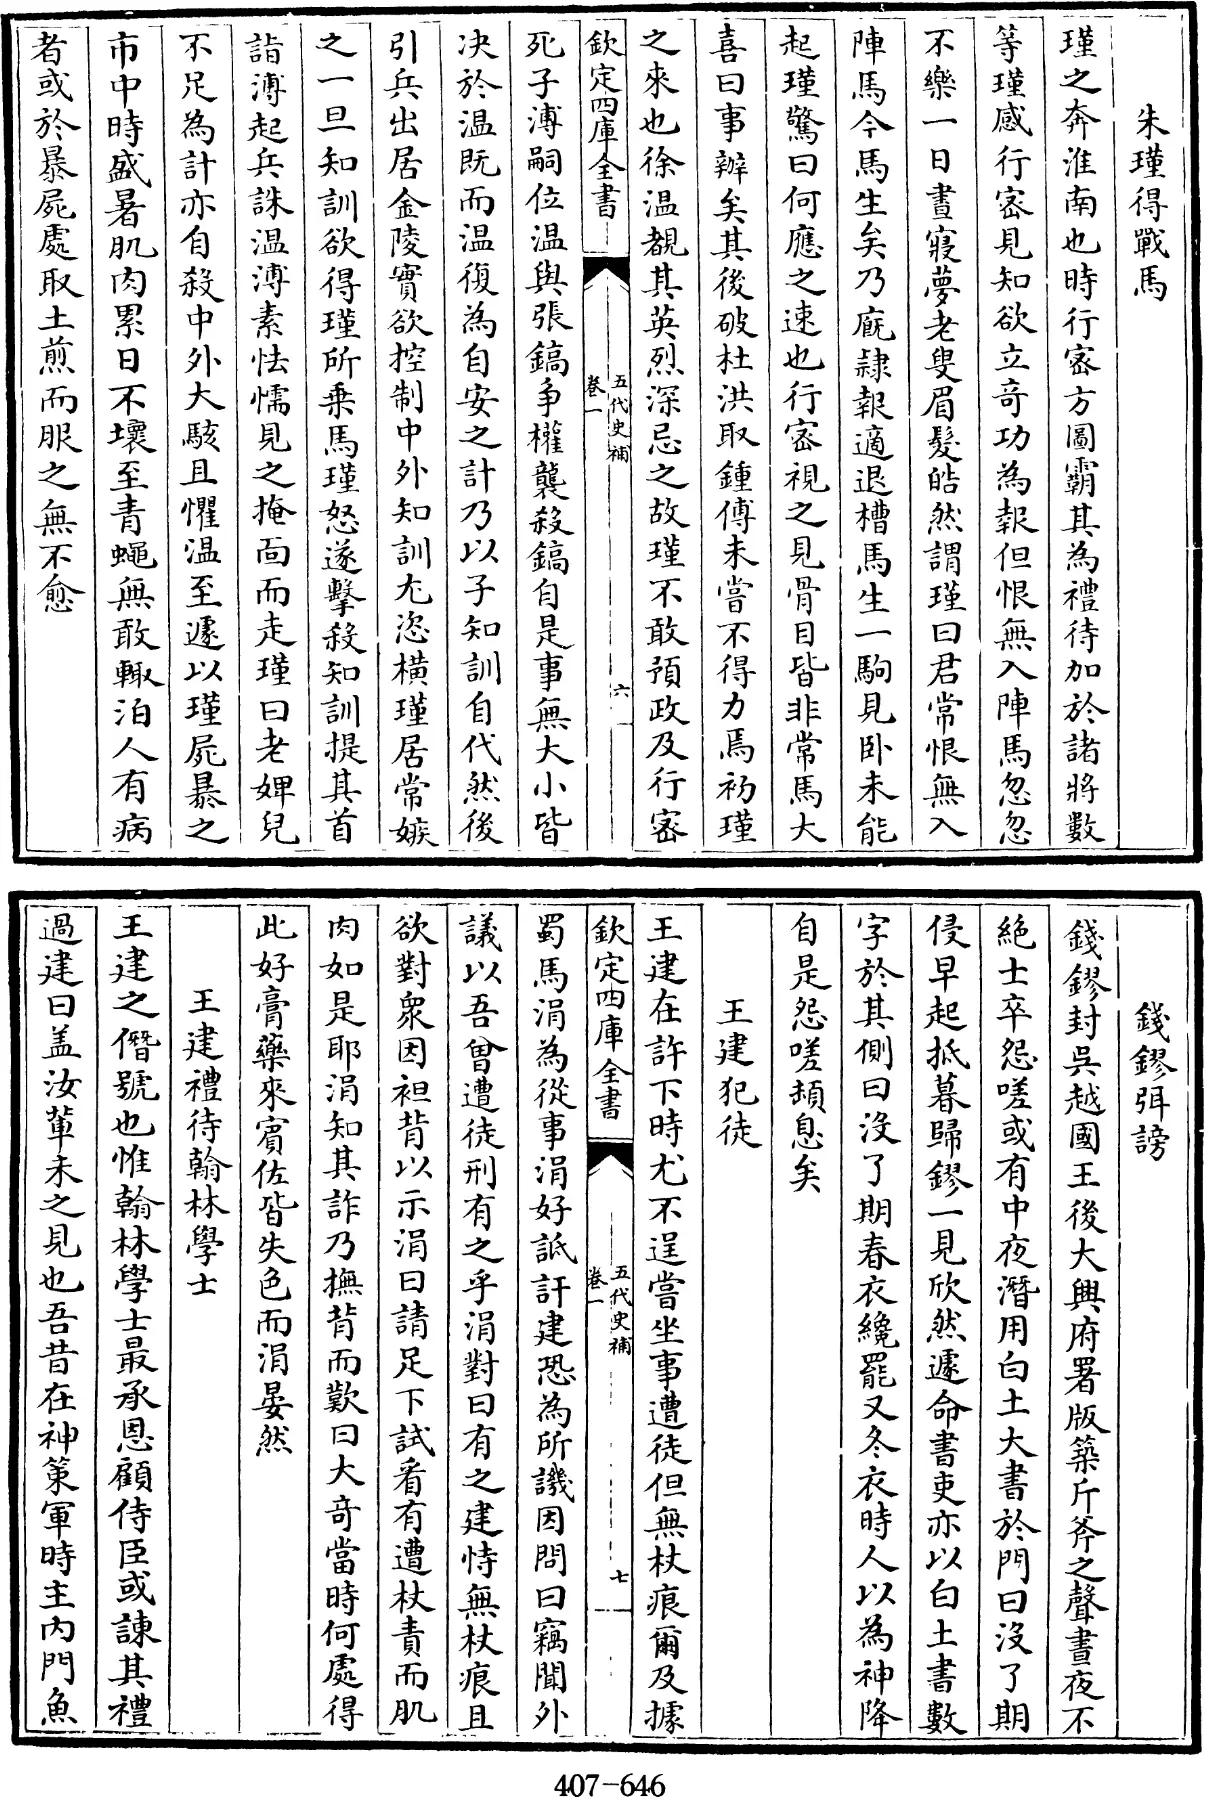 朱瑾得戰馬
瑾之奔淮南也時行宻方圖霸其為禮待加於諸將數
等瑾感行宻見知欲立奇功為報但恨無入陣馬忽忽
不樂一日晝寢夢老叟眉髮皓然謂瑾曰君常恨無入
陣馬今馬生矣乃廐隷報適退槽馬生一駒見卧未能
起瑾驚曰何應之速也行宻視之見骨目皆非常馬大
喜曰事辦矣其後破杜洪取鍾傳未嘗不得力焉初瑾
之來也徐温覩其英烈深忌之故瑾不敢預政及行宻
欽定四庫全書
五代史補
卷一
六
死子溥嗣位温與張鎬争權襲殺鎬自是事無大小皆
决於温既而温復為自安之計乃以子知訓自代然後
引兵出居金陵實欲控制中外知訓尤恣橫瑾居常嫉
之一旦知訓欲得瑾所乗馬瑾怒遂擊殺知訓提其首
詣溥起兵誅温溥素怯懦見之掩面而走瑾曰老婢兒
不足為計亦自殺中外大駭且懼温至遽以瑾屍暴之
市中時盛暑肌肉累日不壞至青蠅無敢輙泊人有病
者或於暴屍處取土煎而服之無不愈
錢鏐弭謗
錢鏐封吳越國王後大興府署版築斤斧之聲晝夜不
絶士卒怨嗟或有中夜潛用白土大書於門曰没了期
侵早起抵暮歸鏐一見欣然遽命書吏亦以白土書數
字於其側曰没了期春衣纔罷又冬衣時人以為神降
自是怨嗟頓息矣
王建犯徒
王建在許下時尤不逞嘗坐事遭徒但無杖痕爾及據
欽定四庫全書
五代史補
卷一
七
蜀馬涓為從事涓好詆訐建恐為所譏因問曰竊聞外
議以吾曾遭徒刑有之乎涓對曰有之建恃無杖痕且
欲對衆因袒背以示涓曰請足下試看有遭杖責而肌
肉如是耶涓知其詐乃撫背而歎曰大奇當時何處得
此好膏藥來賓佐皆失色而涓晏然
王建禮待翰林學士
王建之僭號也惟翰林學士最承恩顧侍臣或諫其禮
過建曰盖汝輩未之見也吾昔在神策軍時主内門魚
407-646